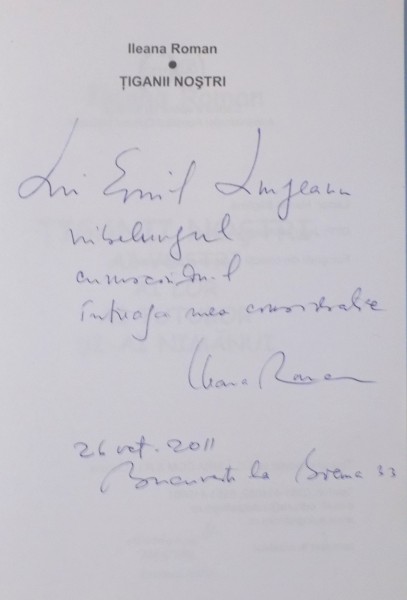 Ileana Roman
●
ȚIGANII NOȘTRI
Lui Emil Lungeanu
nibelungul
cunoscându-l
întreaga mea considerație
Ileana Roman
26 oct. 2011
București la Brema 33